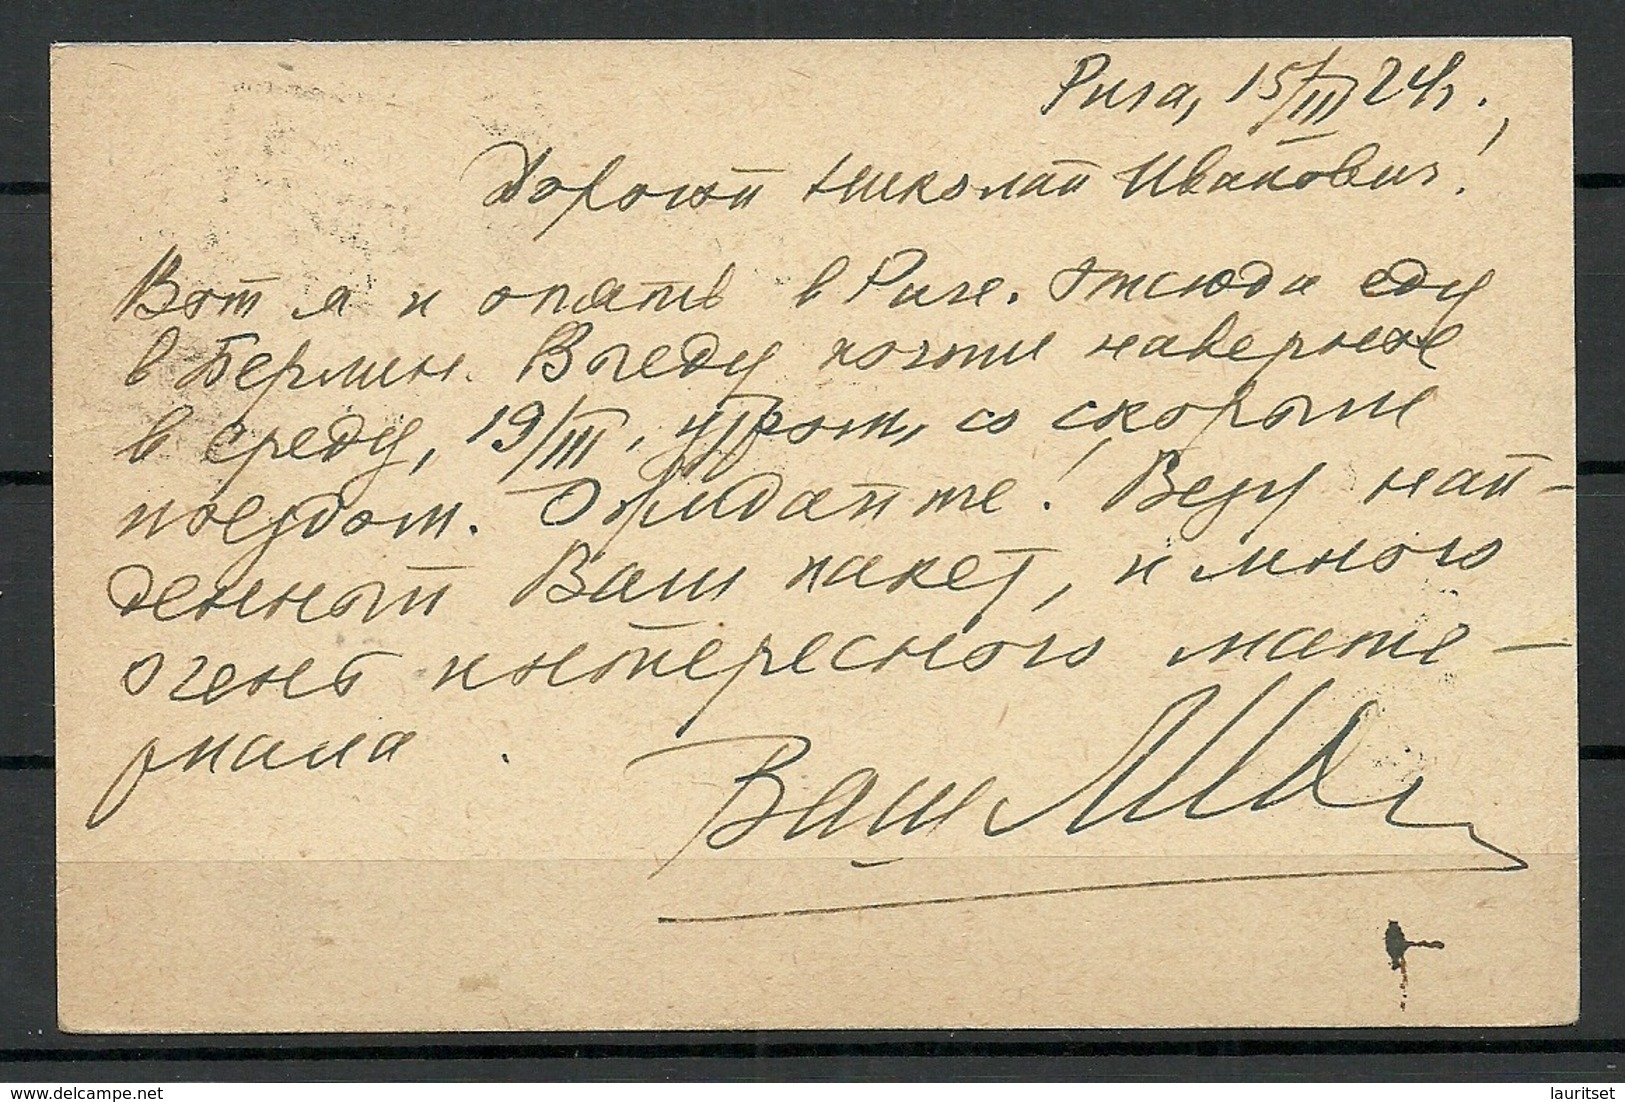 Рига, 15/III 24 г.,
Дорогой Николай Иванович!
Вот я и опять в Риге. Отсюда еду
в Берлин. Выеду почти наверное
в среду, 19/III, утром, со скорым
поездом. Ожидайте! Везу най-
денный Ваш пакет, и много
очень интересного мате-
риала.
Ваш
lauritset